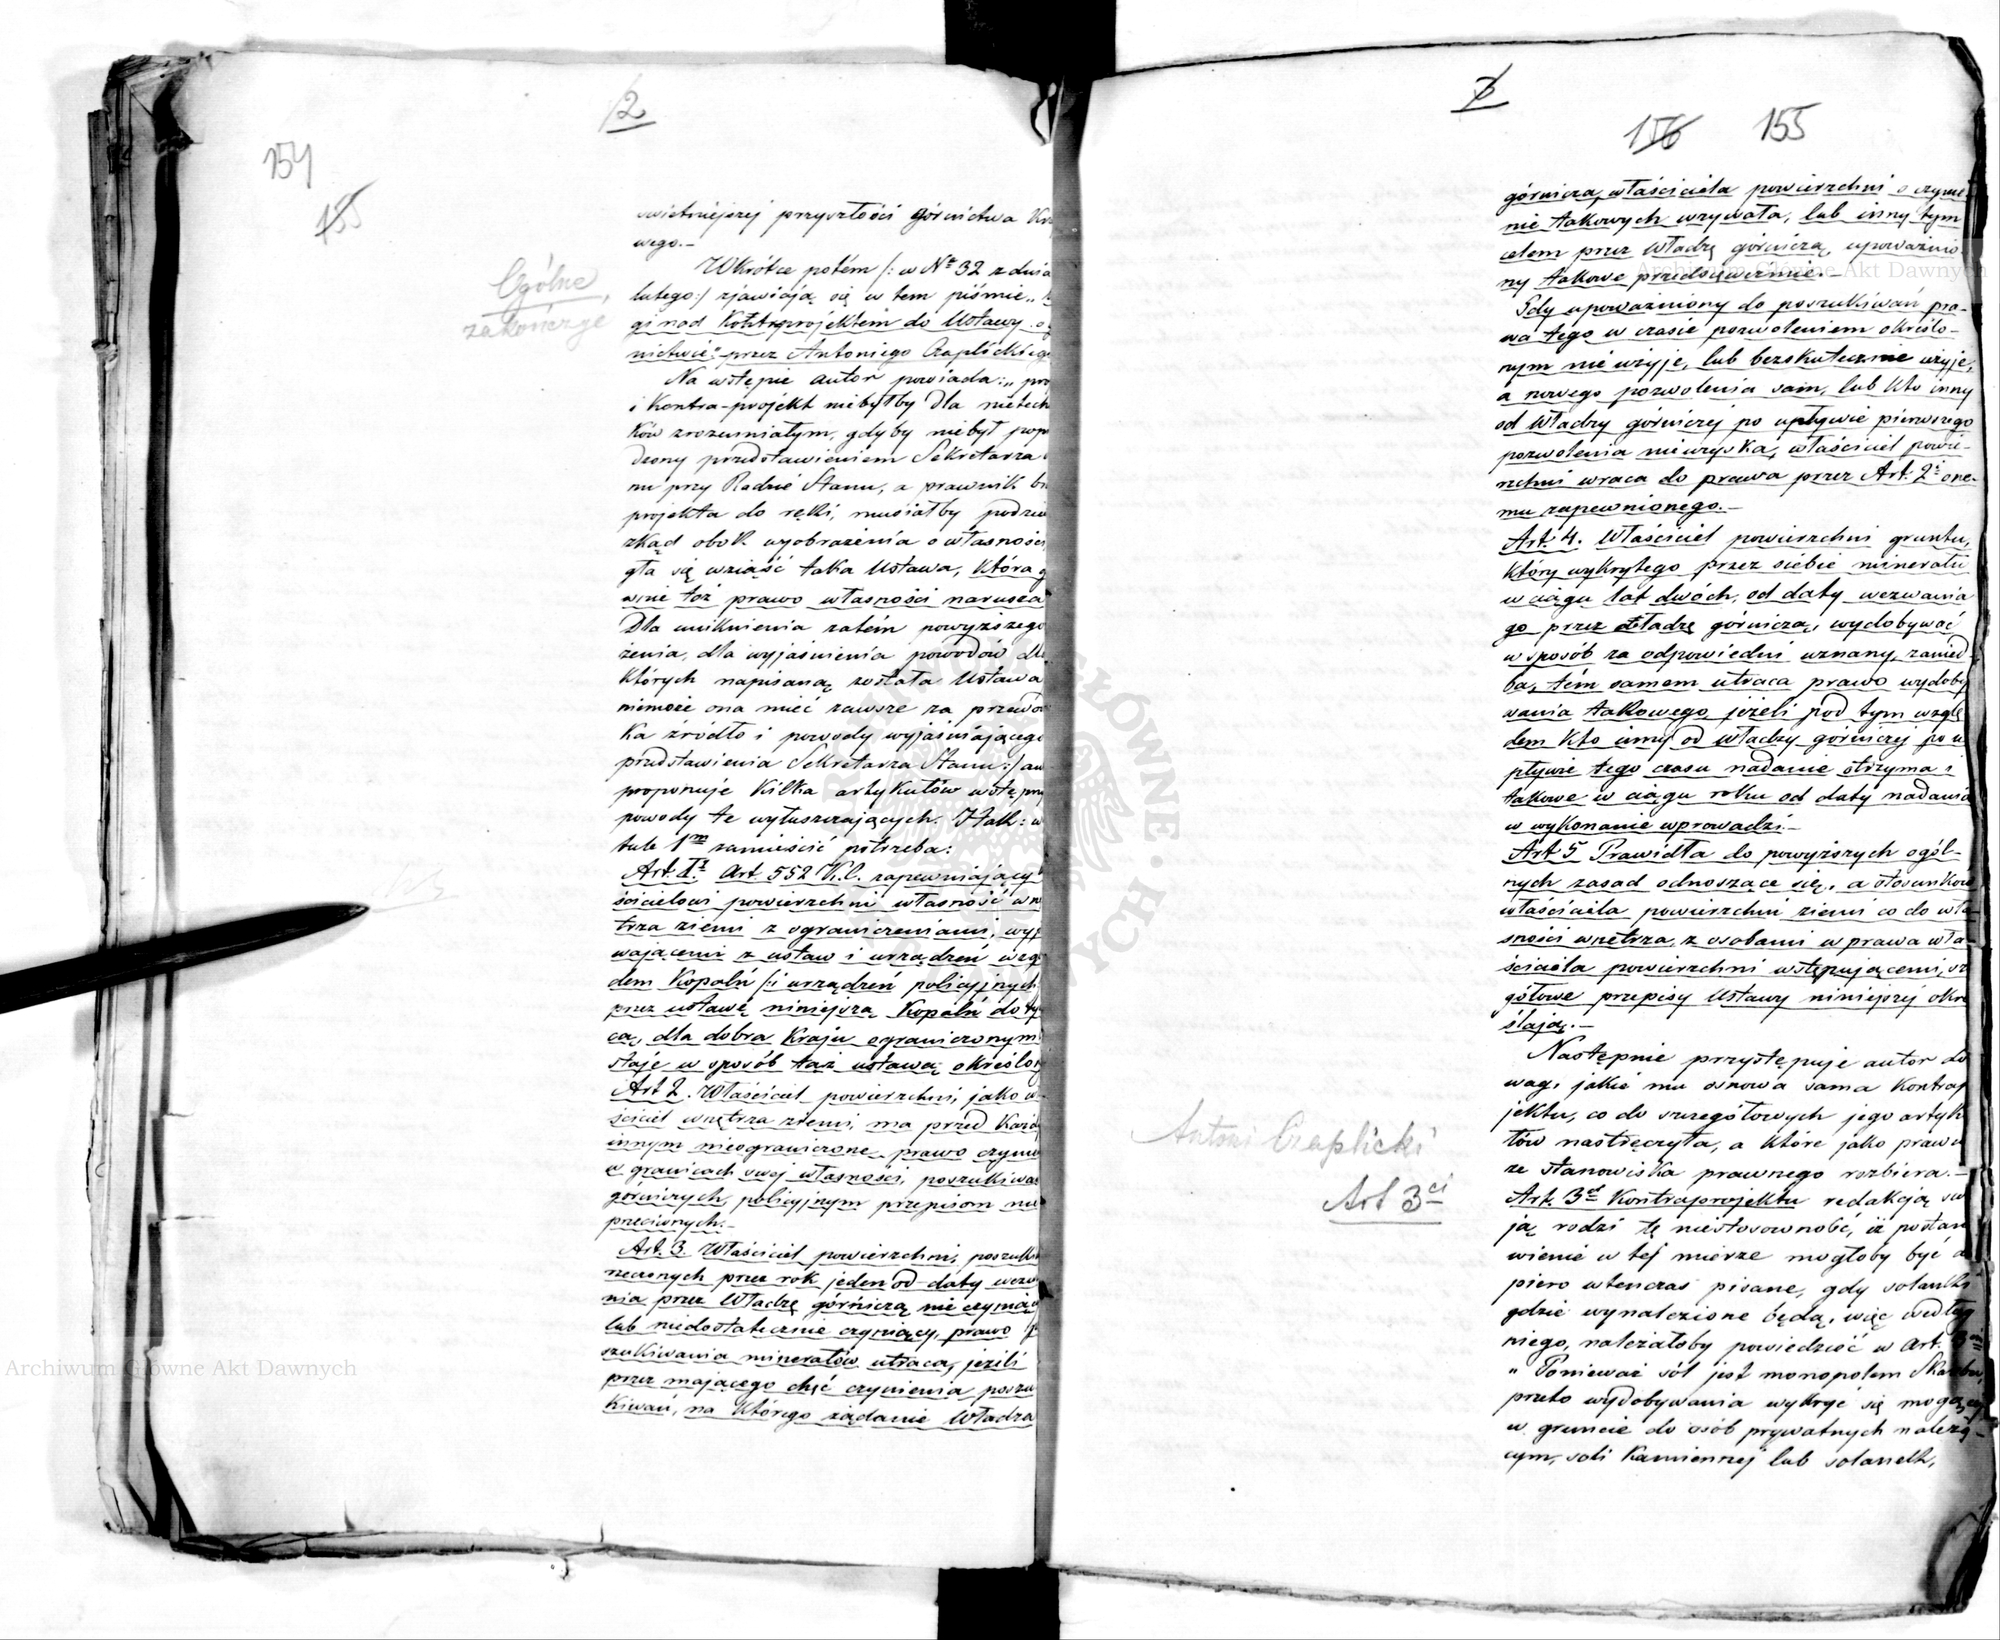 2
154
155
swietniejszej przyszłości górnictwa
wego.—
Ogólne,
Wkrótce potém /: w Nr 32 z dnia
lutego:/ zjawiają się w tem piśmie „
gi nad Kontrprojektem do Ustawy o
nictwie" przez Antoniego Czaplickiego
Na wstępie autor powiada: „
i Kontra-projekt niebyłby dla
ków zrozumiałym, gdyby niebył
dzony przedstawieniem Sekretarza
nu przy Radzie Stanu, a prawnik
projekta do ręki, musiałby
zkąd obok wyobrażenia o własności
gła się wziąść taka Ustawa, która
wnie też prawo własności narusza
Dla uniknienia zatém powyższego
żenia, dla wyjaśnienia powodów dla
których napisaną została Ustawa
niemoże ona mieć zawsze za
ka źródło i powody wyjaśniającego
przedstawienia Sekretarza Stanu:/
proponuje kilka artykułów
powody te wyłuszczających. I tak: w
tule 1m zamieścić potrzeba:
Art. 1. Art. 552 K.C. zapewniający
ścicielowi powierzchni własność
trza ziemi z ograniczeniami,
wającemi z ustaw i urządzeń
dem Kopalń /:i urządzeń policyjnych
przez ustawę niniejszą Kopalń
cą, dla dobra Kraju ograniczonym
staje w sposób taż ustawą
Art 2. Właściciel powierzchni, jako
ściciel wnętrza ziemi, ma przed
innym nieograniczone prawo
w granicach swej własności,
górniczych, policyjnym przepisom
przeciwnych.—
Art. 3. Właściciel powierzchni,
rzeczonych przez rok jeden od daty
nia przez Władzę górniczą nie
lub niedostatecznie czyniący, prawo
szukiwania minerałów utraca, jeżeli
przez mającego chęć czynienia
kiwań, na którego żądanie Władza
156 155
górnicza, właściciela powierzchni o
nie takowych wzywała, lub inny tym
celem przez Władzę górniczą
ny takowe przedsięweźmie.—
Archiwum Główne Akt Dawnych
Gdy upoważniony do poszukiwań pra-
wa tego w czasie pozwoleniem określo-
nym nie użyje, lub bezskutecznie użyje,
a nowego pozwolenia sam, lub kto inny
od Władzy górniczej po upływie pierwszego
pozwolenia nieuzyska, właściciel powie-
rzchni wraca do prawa przez Art. 2i one-
mu zapewnionego.—
Art. 4. Właściciel powierzchni gruntu,
który wykrytego przez siebie minerału
w ciągu lat dwóch, od daty wezwania
go przez Władzę górniczą, wydobywać
w sposób za odpowiedni uznany,
ba, tém samem utraca prawo
wania takowego, jeżeli pod tym
dem kto inny od Władzy górniczej po u-
pływie tego czasu nadanie otrzyma i
takowe w ciągu roku od daty nadania
w wykonanie wprowadzi.—
Art 5 Prawidła do powyższych ogól-
nych zasad odnoszące się, a stosunków
właściciela powierzchni ziemi co do
sności wnętrza, z osobami w prawa
ściciela powierzchni wstępującemi,
gółowe przepisy Ustawy niniejszej
ślają.—
Następnie przystępuje autor do
wag, jakie mu osnowa sama
jektu, co do szczegółowych jego
łów nastręczyła, a które jako
ze stanowiska prawnego rozbiera.—
Antoni Czaplicki
Art 3ci
Art. 3ci Kontraprojektu redakcją
ją rodzi tę niestosowność, iż
wienie w tej mierze mogłoby być
piero wtenczas pisane, gdy solanki
gdzie wynalezione będą, więc według
niego, należałoby powiedzieć w Art. 3im
„Ponieważ sól jest monopolem Skarbu,
przeto wydobywania wykryć się
w gruncie do osób prywatnych należą-
cym, soli kamiennej lub solanek,
Archiwum Główne Akt Dawnych